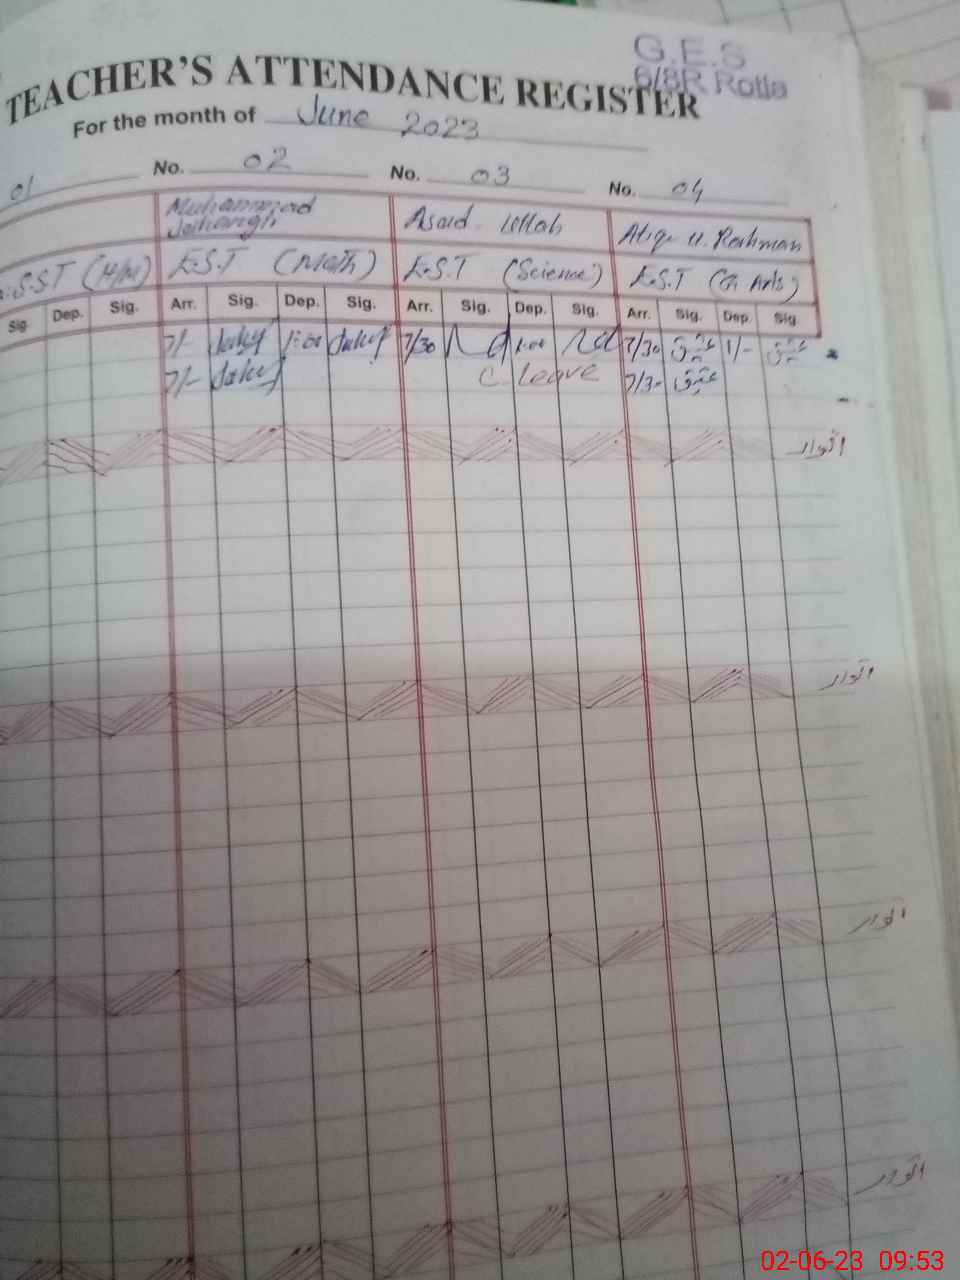 G.E.S
6/8R Rotla
TEACHER'S ATTENDANCE REGISTER
For the month of June 2023
01 No. 02 No. 03 No. 04
Muhammad Jahangir Asad Ullah Atiq u. Rehman
S.S.T (H/M) E.S.T (Math) E.S.T (Science) E.S.T (G. Arts)
Sig. Dep. Sig. Arr. Sig. Dep. Sig. Arr. Sig. Dep. Sig. Arr. Sig. Dep. Sig
7/- 1:00 7/30 1:00 7/30 عتیق 1/- عتیق
7/- C. Leave 7/30 عتیق
اتوار
اتوار
اتوار
اتوار
02-06-23 09:53